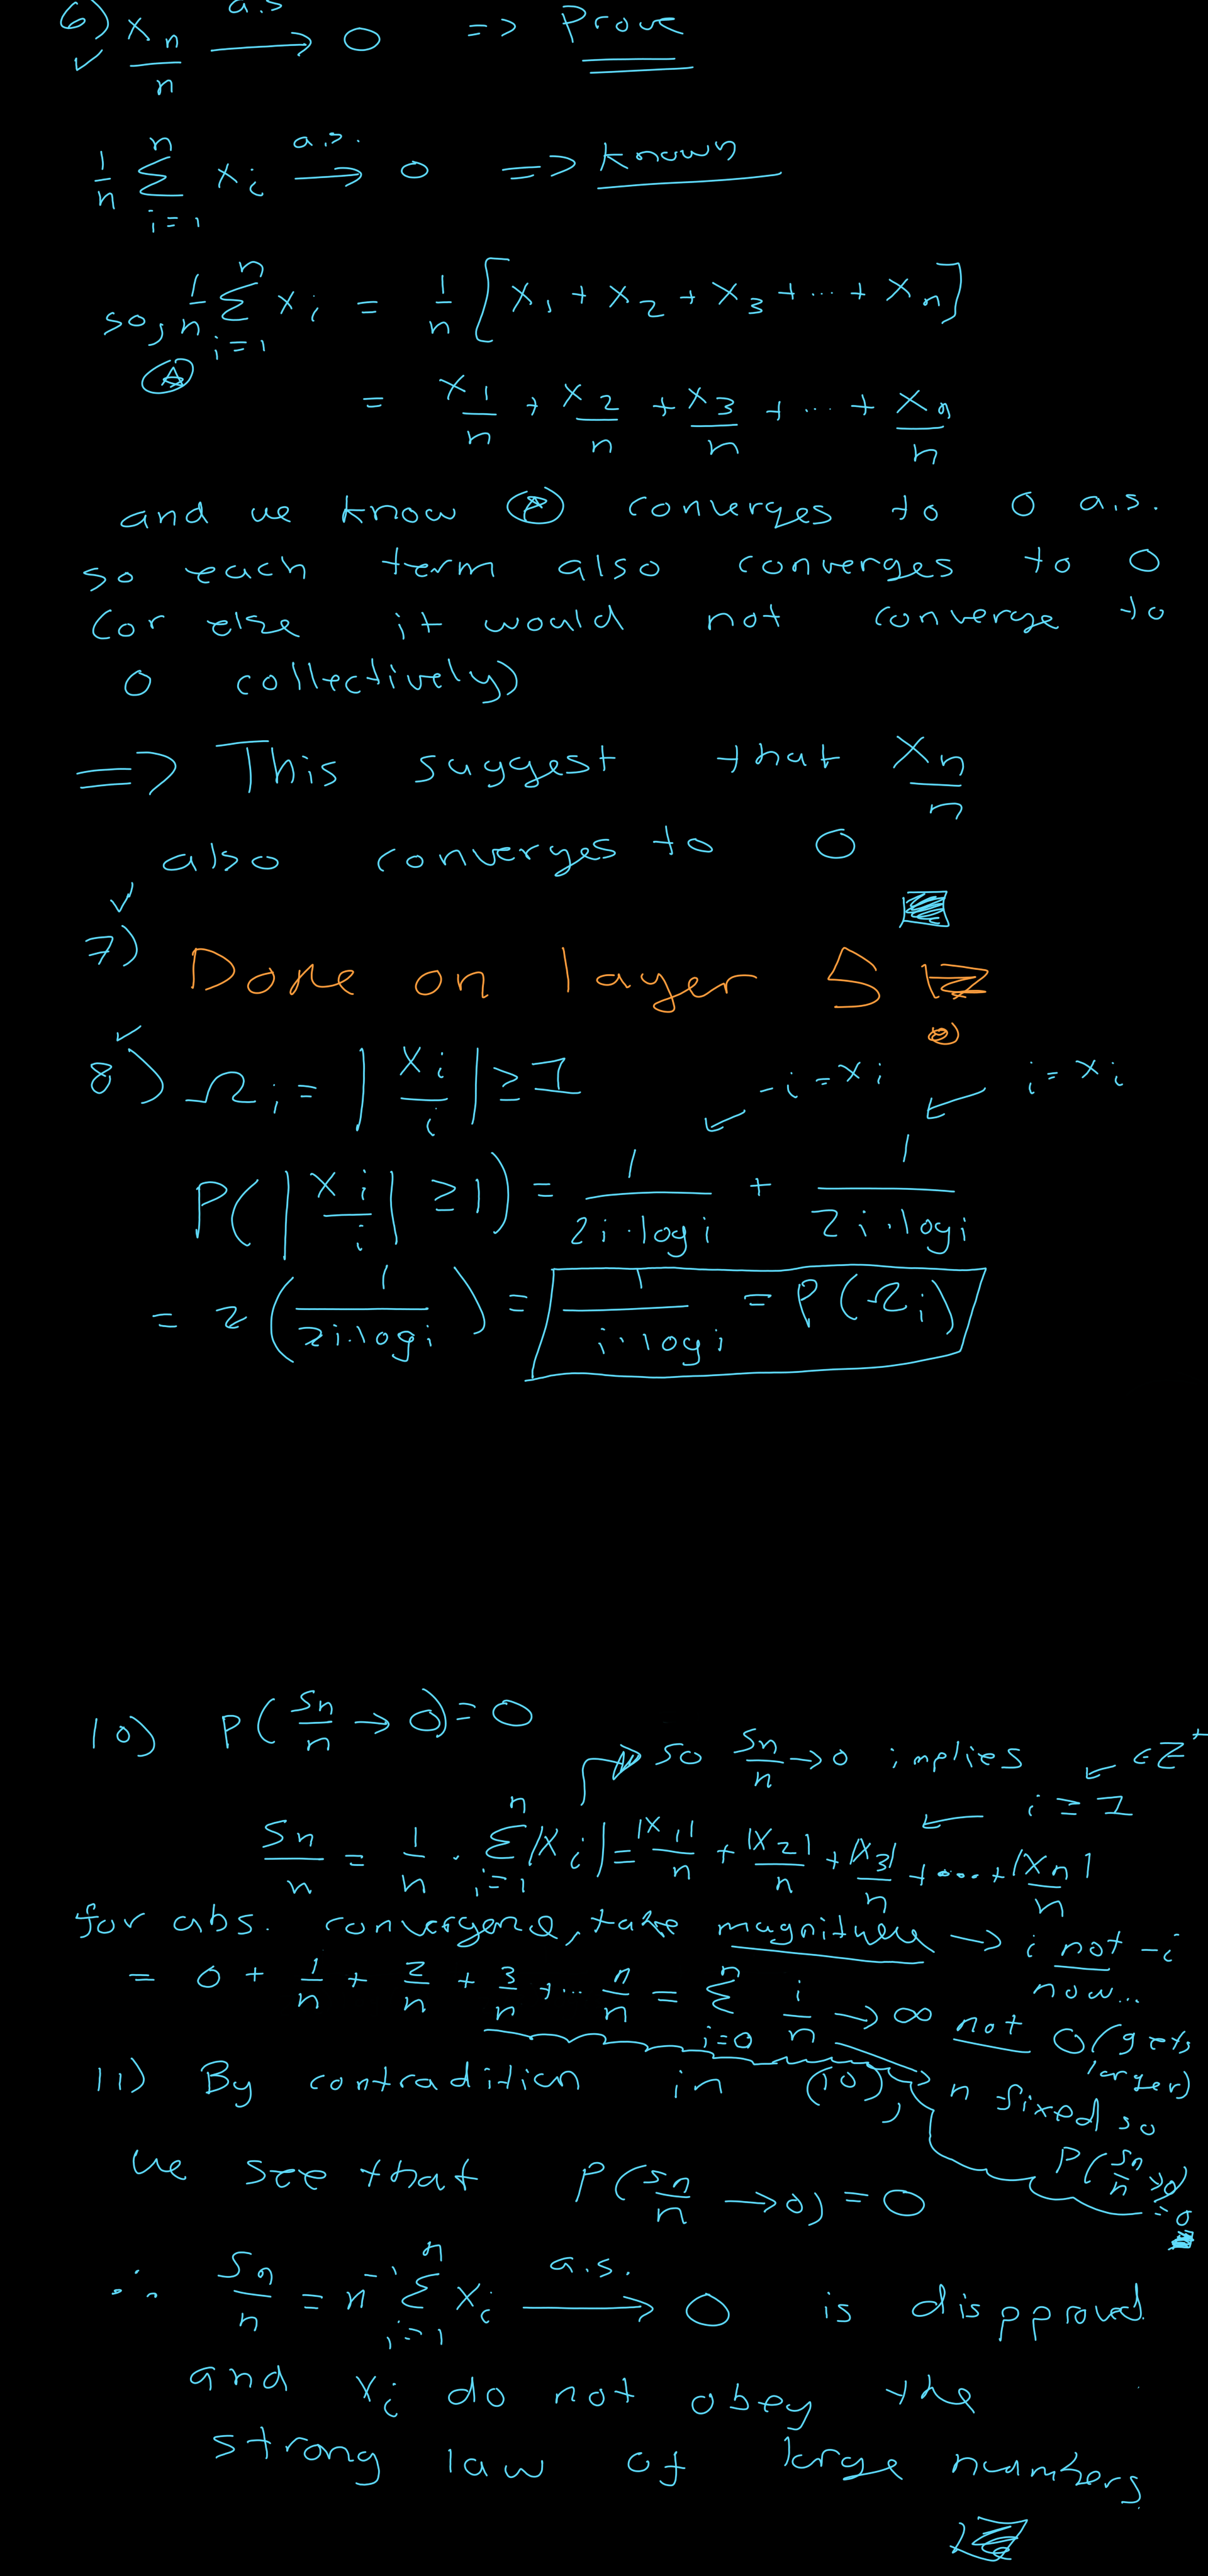 6) X_n/n a.s → 0 => Prove
✓
1/n Σ_{i=1}^{n} x_i a.s. → 0 => known
so, 1/n Σ_{i=1}^{n} x_i = 1/n [x_1 + x_2 + x_3 + ... + x_n]
= x_1/n + x_2/n + x_3/n + ... + x_n/n
and we know ⍟ converges to 0 a.s.
so each term also converges to 0
(or else it would not converge to
0 collectively)
=> This suggest that x_n/n
also converges to 0
✓
7) Done on layer 5
✓
8) Ω_i = |x_i/i| ≥ 1 -i = x_i i = x_i
P(|x_i/i| ≥ 1) = 1/(2i·log i) + 1/(2i·log i)
= 2 (1/(2i·log i)) = 1/(i·log i) = P(Ω_i)
10) P(S_n/n → 0) = 0
so S_n/n → 0 implies
i ≥ 1 ∈ Z^+
S_n/n = 1/n · Σ_{i=1}^{n} |x_i| = |x_1|/n + |x_2|/n + |x_3|/n + .... + |x_n|/n
for abs. convergence, take magnitude → i not -i
now...
= 0 + 1/n + 2/n + 3/n + ... n/n = Σ_{i=0}^{n} i/n → ∞ not 0 (gets
larger)
n fixed so
P(S_n/n → 0)
= 0
11) By contradition in (10),
we see that P(S_n/n → 0) = 0
∴ S_n/n = n^{-1} Σ_{i=1}^{n} x_i a.s. → 0 is dispproved
and x_i do not obey the
strong law of large numbers